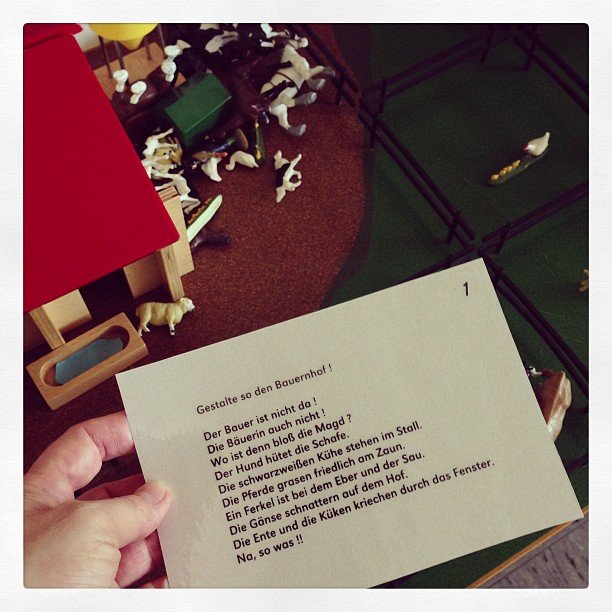 1
Gestalte so den Bauernhof !
Der Bauer ist nicht da !
Die Bäuerin auch nicht !
Wo ist denn bloß die Magd ?
Der Hund hütet die Schafe.
Die schwarzweißen Kühe stehen im Stall.
Die Pferde grasen friedlich am Zaun.
Ein Ferkel ist bei dem Eber und der Sau.
Die Gänse schnattern auf dem Hof.
Die Ente und die Küken kriechen durch das Fenster.
Na, so was !!